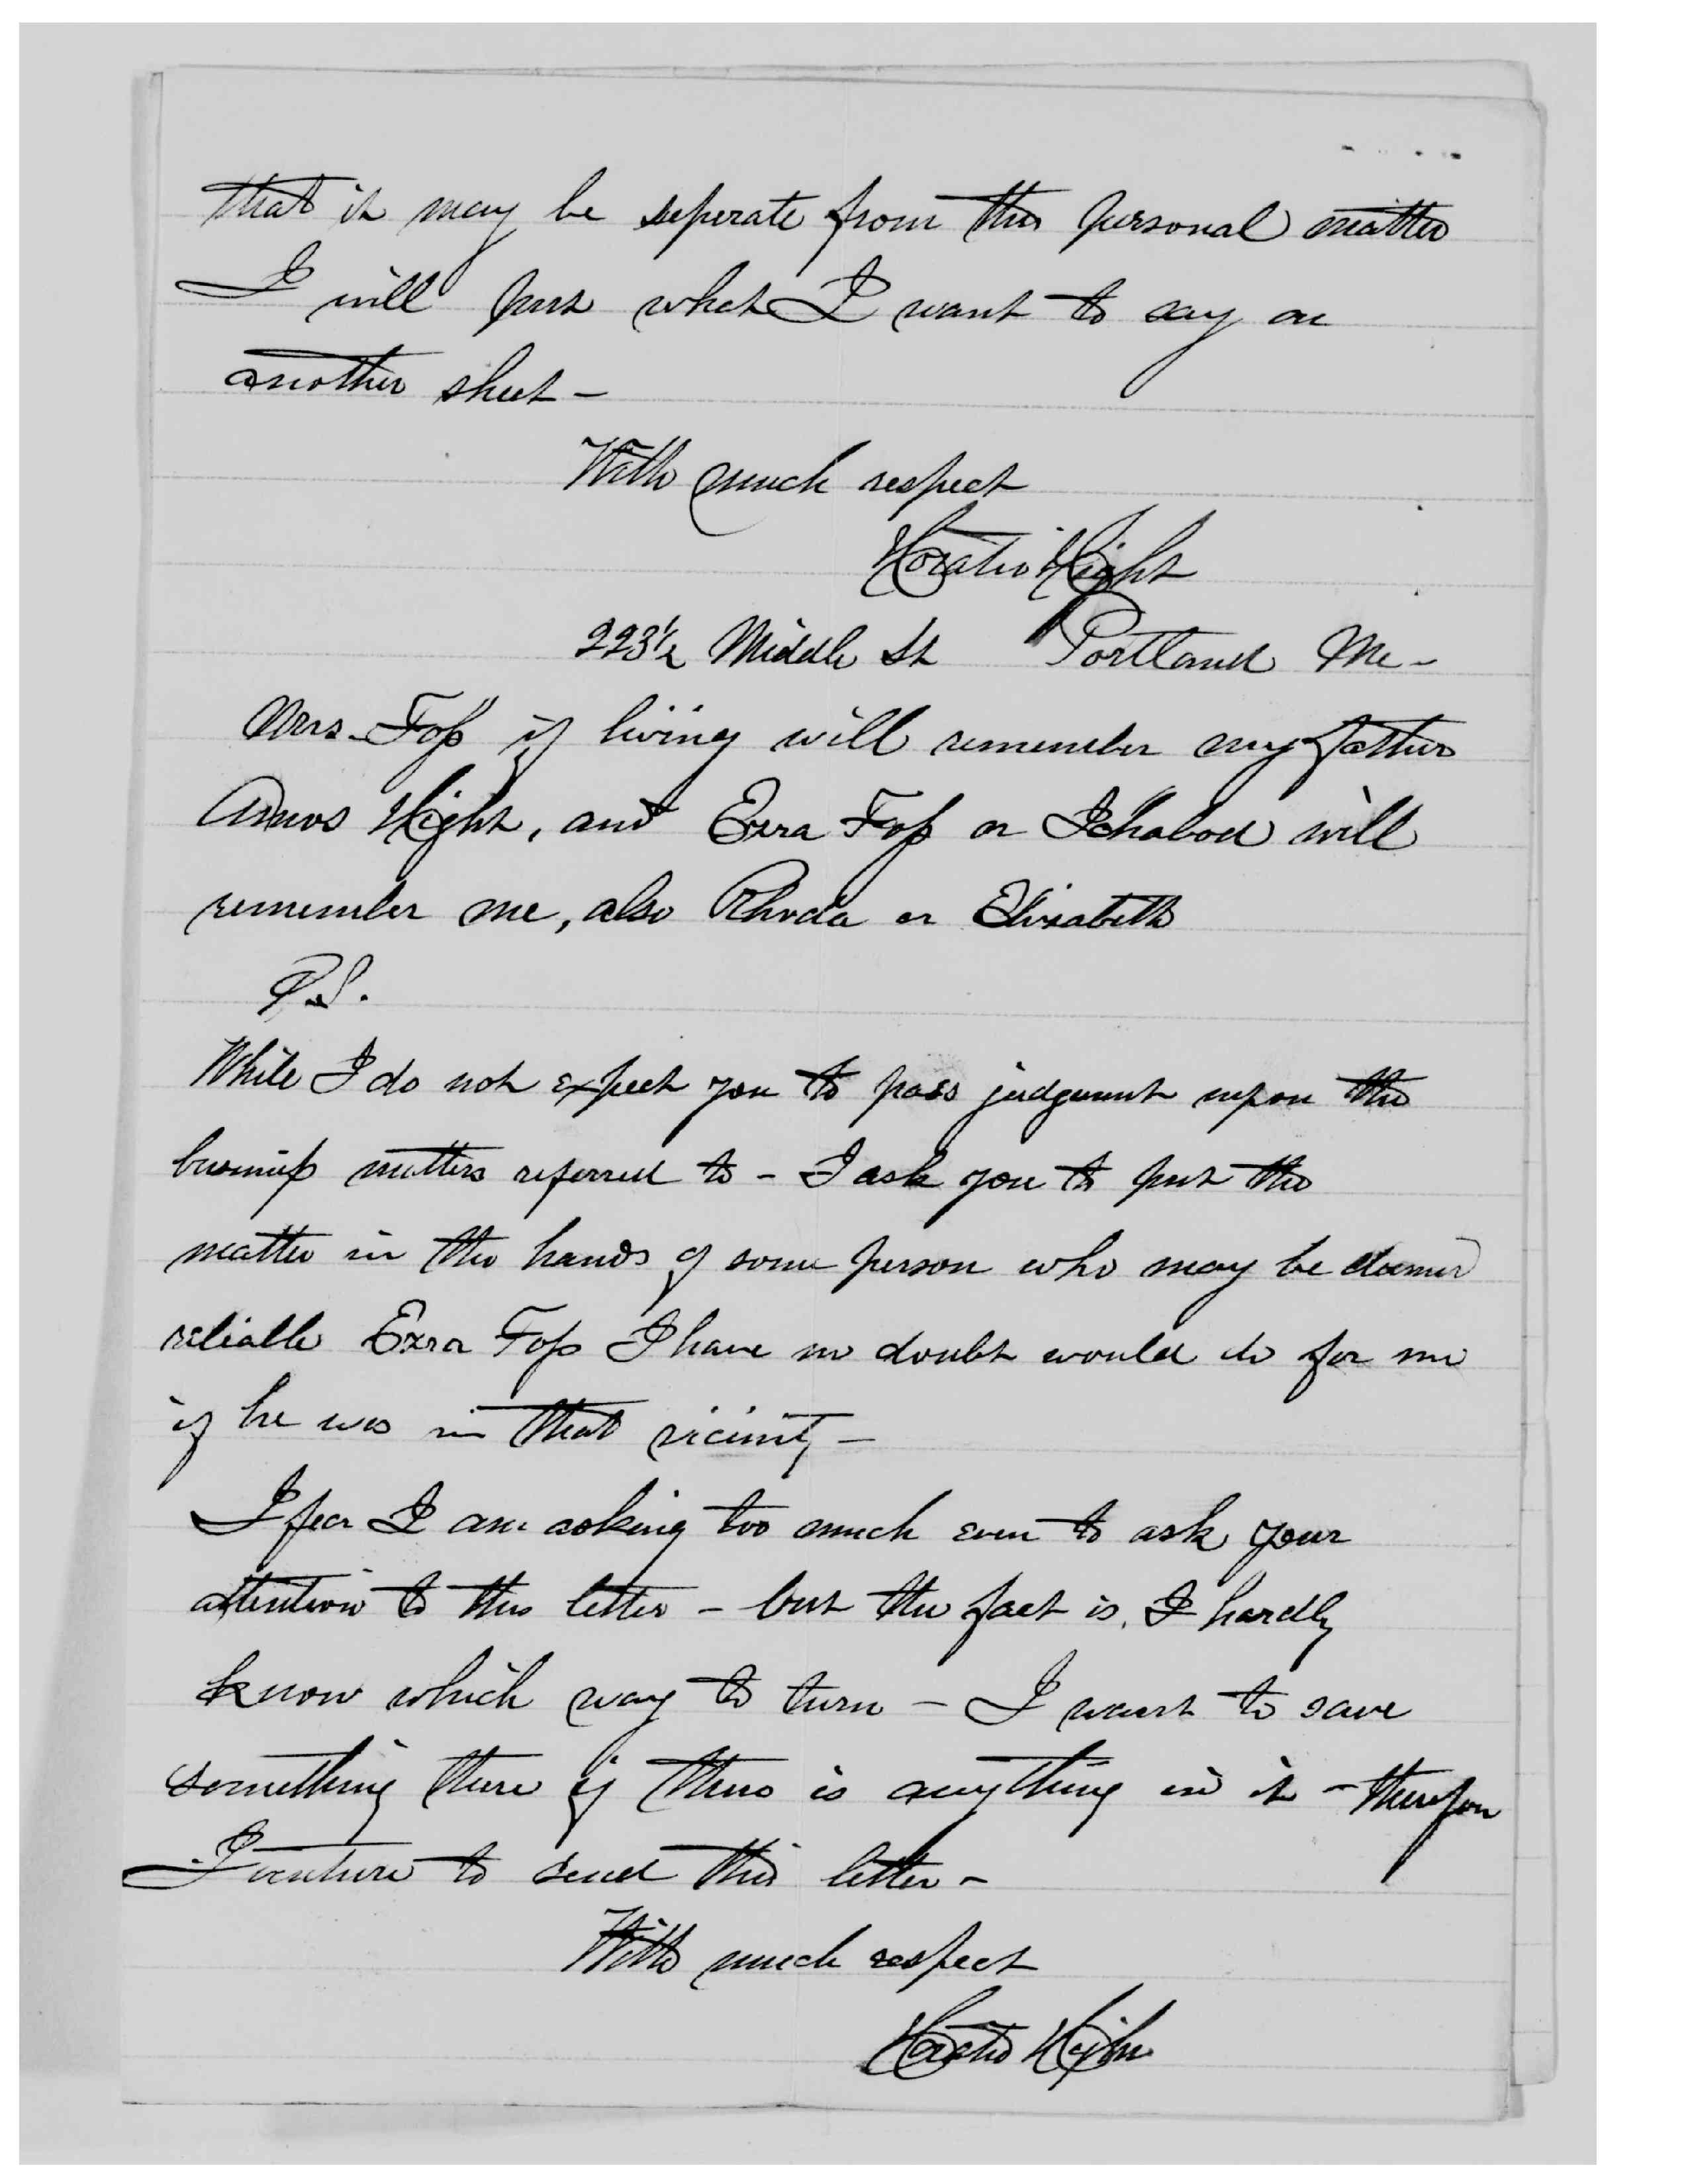 that it may be seperate from this personal matter
I will put what I want to say on
another sheet -
With much respect
Horatio Hight
223½ Middle St Portland Me -
Mrs. Foss if living will remember my father
Amos Hight, and Ezra Foss or Ichabod will
remember me, also Rhoda or Elizabeth
P.S.
While I do not expect you to pass judgment upon the
business matters referred to - I ask you to put the
matter in the hands of some person who may be deemed
reliable Ezra Foss I have no doubt would do for me
if he was in that vicinity -
I fear I am asking too much even to ask your
attention to this letter - but the fact is, I hardly
know which way to turn - I want to save
something there if there is anything in it - therefore
I venture to send this letter -
With much respect
Horatio Hight